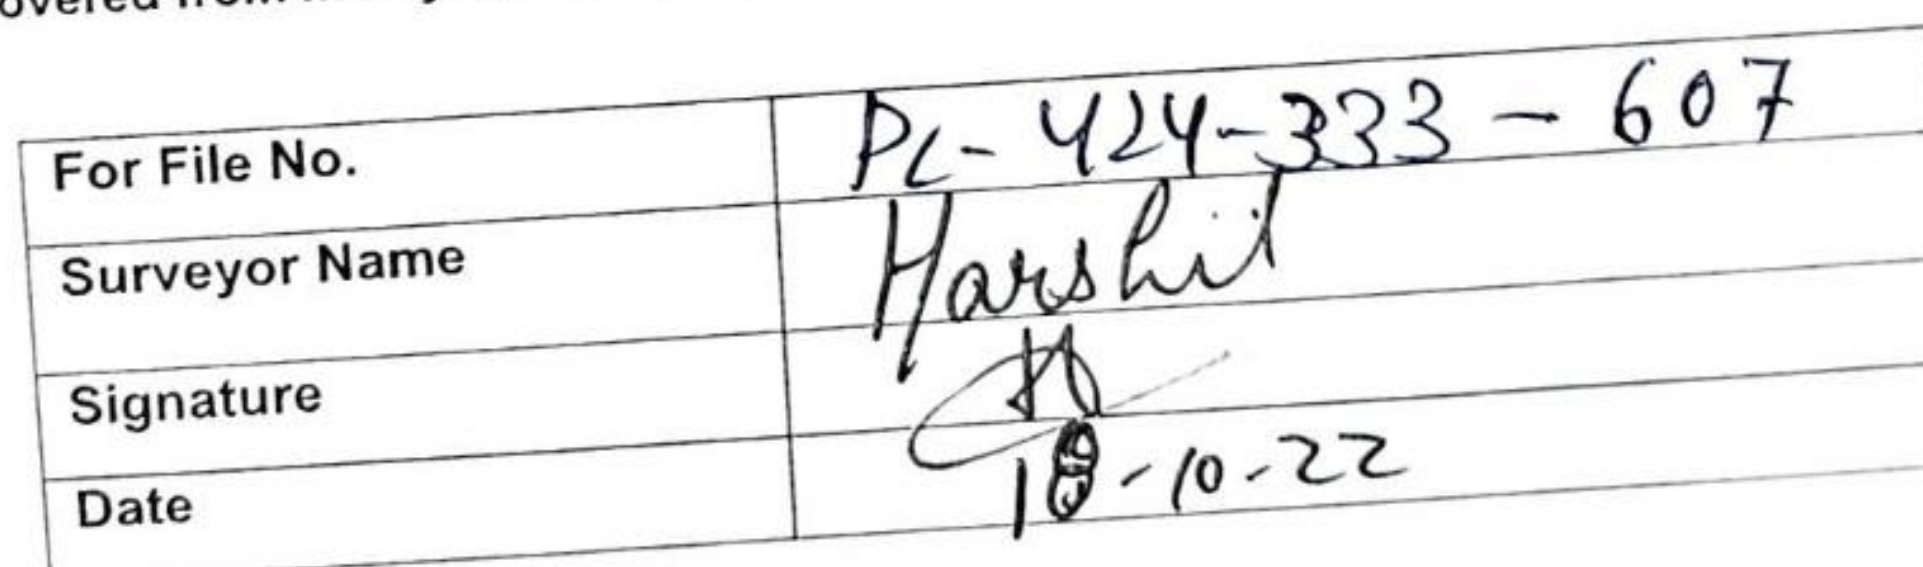 For File No. PL-424-333-607
Surveyor Name Harshit
Signature
Date 18-10-22